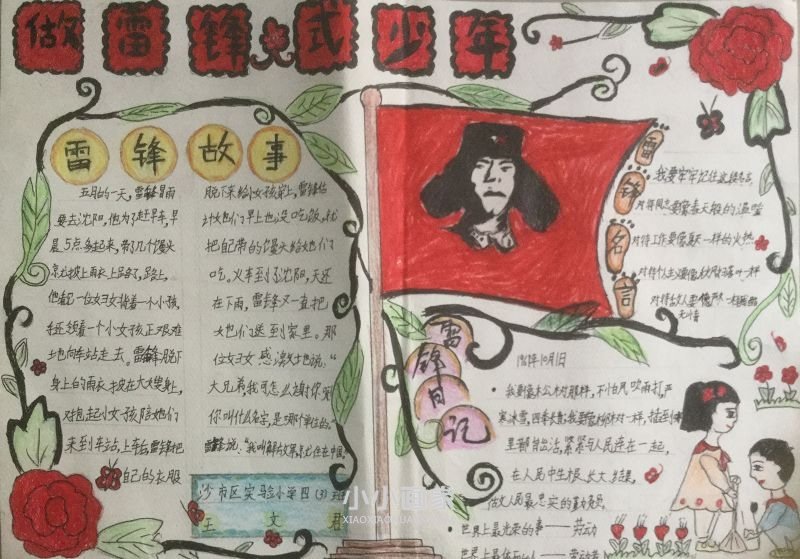 做雷锋式少年
雷锋故事
五月的一天,雷锋冒雨
要去沈阳,他为了赶早车,早
晨5点多起来,带了几个馒头
就披上雨衣上路了,路上,
他看一位妇女背着一个小孩,
手还领着一个小女孩正艰难
地向车站走去。雷锋脱下
身上的雨衣披在大嫂身上,
对抱起小女孩陪她们
来到车站,上车后,雷锋把
自己的衣服
脱下来给小女孩穿上,雷锋估
计她们早上也没吃饭,就
把自己带的馒头给她们
吃。火车到了沈阳,天还
在下雨,雷锋又一直把
她们送到家里。那
位妇女感激地说:“
大兄弟,我可怎么谢你呀
你叫什么名字,是哪个单位的。
雷锋说:“我叫解放军,就住在中国
沙市区实验小学四(3)班
王文君
雷锋名言
我要牢牢记住这段名言
对待同志要像春天般的温暖
对待工作要像夏天一样的火热
对待个人主义要像秋风扫落叶一样
对待敌人要像严冬一样残酷
无情
雷锋日记
1961年10月1日
• 我要像松木那样,不怕风吹雨打,严
寒冰雪,四季长青;我要像杨柳一样,插到哪
里都能活,紧紧与人民连在一起,
在人民中生根,长大,结果,
做人民最忠实的勤务员。
• 世界上最光荣的事——劳动
世界上最体面的人——劳动者
小小画家
XIAOXIAOHUAJIA